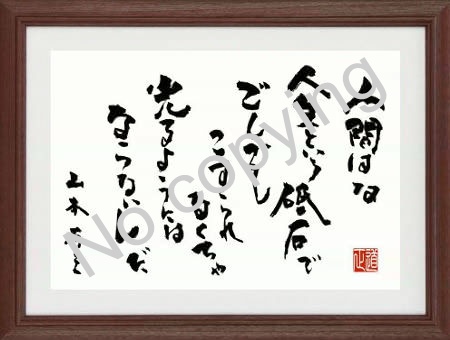 人間はな
人生という砥石で
ごしごし
こすられ
なくちゃ
光るようには
ならないんだ
山本有三
No copying